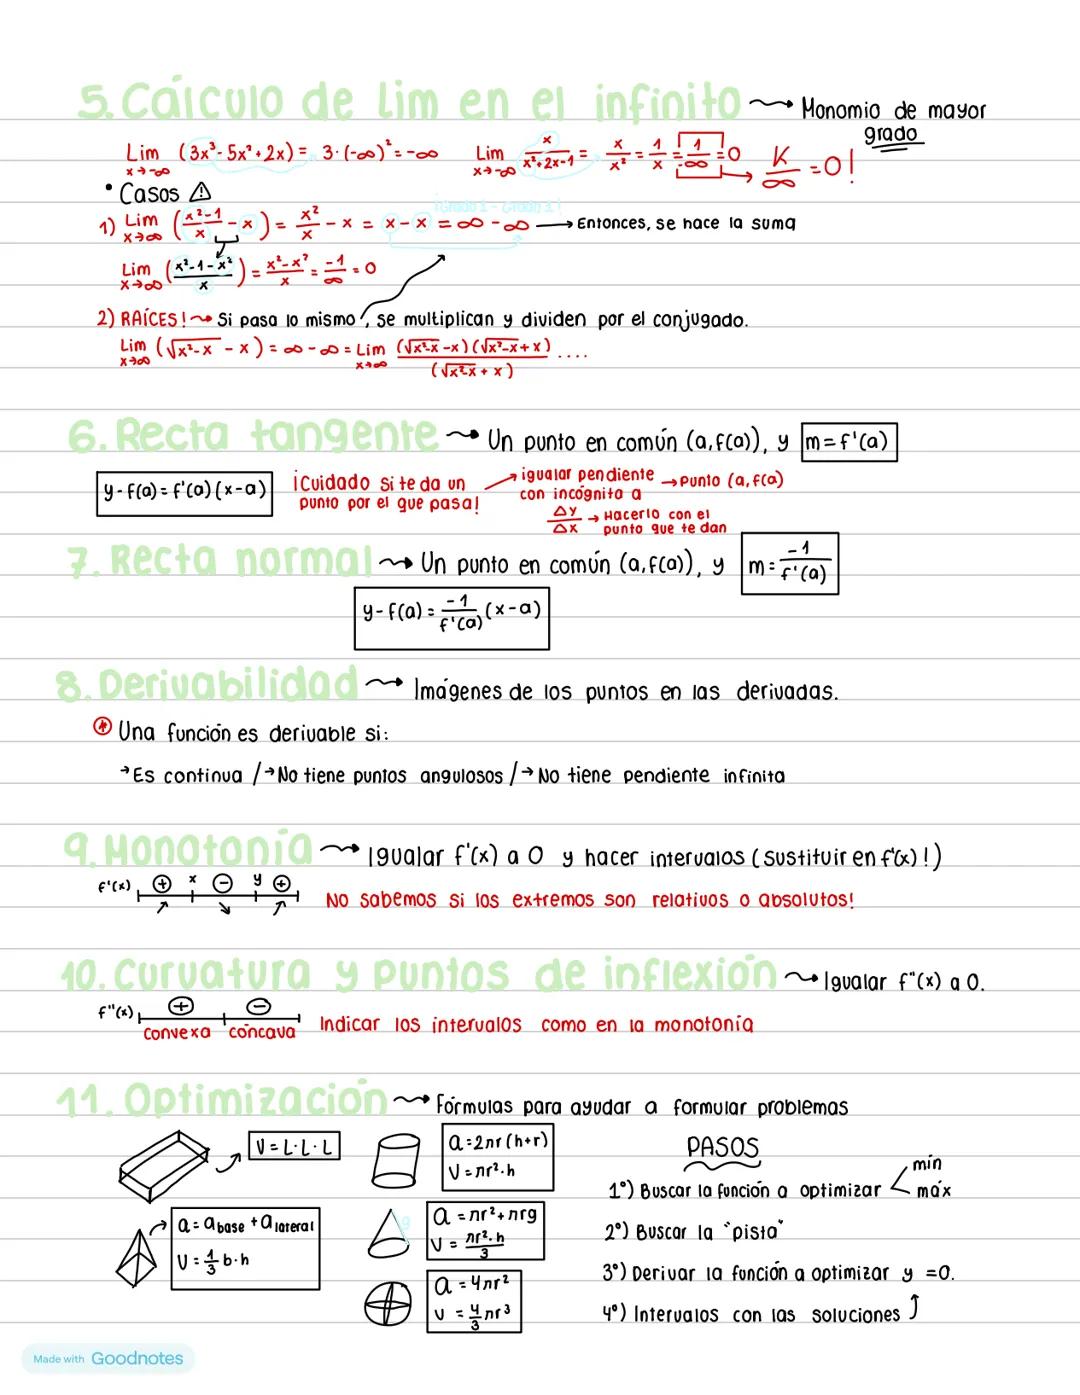 5. Cálculo de Lim en el infinito → Monomio de mayor grado
Lim x→-∞ (3x³-5x²+2x) = 3·(-∞)² = -∞   Lim x→-∞ x/(x²+2x-1) = x/x² = 1/x = 1/-∞ = 0 → K/∞ = 0!
• Casos ⚠
¡Grado 1 - Grado 1!
1) Lim x→∞ ((x²-1)/x - x) = x²/x - x = x - x = ∞ - ∞ → Entonces, se hace la suma
Lim x→∞ ((x²-1-x²)/x) = (x²-x²)/x = -1/∞ = 0
2) RAÍCES! → Si pasa lo mismo, se multiplican y dividen por el conjugado.
Lim x→∞ (√x²-x - x) = ∞ - ∞ = Lim x→∞ (√x²-x - x)(√x²-x + x)/(√x²-x + x) ....
6. Recta tangente → Un punto en común (a,f(a)), y m = f'(a)
y - f(a) = f'(a)(x-a)
¡Cuidado si te da un punto por el que pasa!
→ igualar pendiente con incógnita a → Punto (a,f(a))
Δy/Δx → Hacerlo con el punto que te dan
7. Recta normal → Un punto en común (a,f(a)), y m = -1/f'(a)
y - f(a) = -1/f'(a) (x-a)
8. Derivabilidad → Imágenes de los puntos en las derivadas.
* Una función es derivable si:
→ Es continua / → No tiene puntos angulosos / → No tiene pendiente infinita
9. Monotonía → Igualar f'(x) a 0 y hacer intervalos (sustituir en f'(x)!)
f'(x) + x - y +
↗ ↘ ↗
No sabemos si los extremos son relativos o absolutos!
10. Curvatura y puntos de inflexión → Igualar f"(x) a 0.
f"(x) + -
convexa cóncava
Indicar los intervalos como en la monotonía
11. Optimización → Fórmulas para ayudar a formular problemas
V = L·L·L
a = 2πr(h+r)
V = πr²·h
a = a base + a lateral
V = 1/3 b·h
g
a = πr² + πrg
V = πr²·h/3
a = 4πr²
V = 4/3 πr³
PASOS
1º) Buscar la función a optimizar < mín máx
2º) Buscar la "pista"
3º) Derivar la función a optimizar y =0.
4º) Intervalos con las soluciones ↑
Made with Goodnotes